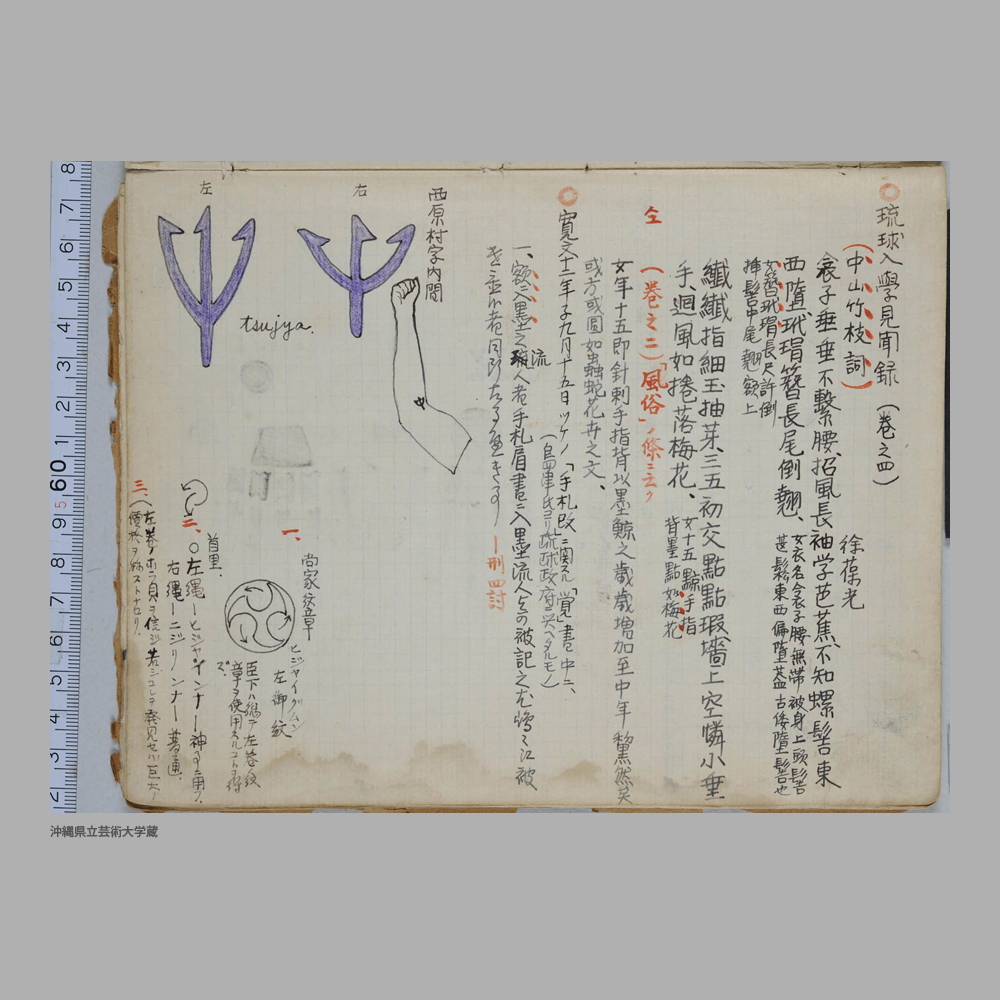 琉球入學見聞録(巻之四)
徐葆光
(中山竹枝詞)
袞子垂垂不繫腰、招風長袖学芭蕉、不知螺髻東
西墮、玳瑁簪長尾倒翹、
女衣名今衣子腰無帯被身上頭髻
甚鬆東西偏墮蓋古倭墮髻也
女簪玳瑁長尺許倒
挿髻中尾翹額上
纖纖指細玉抽芽、三五初交點點瑕、墻上空憐小垂
手、廻風如捲落梅花、
女十五黥手指
背墨點如梅花
仝
(巻之二)「風俗」ノ條ニ云ク
女年十五即針刺手指背以墨鯨之歳歳増加至中年黎然矣
或方或圓如蟲蛇花卉之文、
寛文十二年子九月十五日ツケノ「手札改ニ関スル「覚」書中ニ、
(島津氏ヨリ琉球政府ニ与ヘタルモノ)
一、額ニ入墨之流人者手札肩書ニ入墨流人与可被記之
刑四討
西原村字内間
右
左
tsujya.
一、
尚家紋章
ヒジャイグムン
左御紋
臣下ハ總テ左巻紋
章ヲ使用スルコトヲ得
ズ、
首里、
二、○左縄ーヒジャインナー神事ニ用フ、
右縄ーニジリンナー普通、
三、(左巻ノホラ貝ヲ信ジ若シコレヲ発見セバ巨大ノ
價格ヲ
8
7
6
5
4
3
2
1
60
9
8
7
6
5
4
3
2
沖縄県立芸術大学蔵